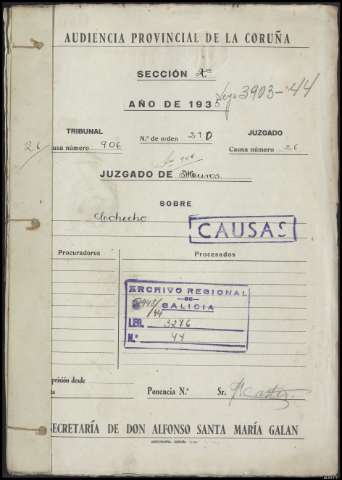 AUDIENCIA PROVINCIAL DE LA CORUÑA
SECCIÓN
3903-44
AÑO DE 1935
TRIBUNAL
Causa número 906
N.º de orden 310
JUZGADO
Causa número 26
26
JUZGADO DE Muros
SOBRE
Cohecho
CAUSAS
Procuradores
Procesados
ARCHIVO REGIONAL
DE
GALICIA
LEG. 3276
N.º 44
prisión desde
Ponencia N.º
Sr.
SECRETARÍA DE DON ALFONSO SANTA MARÍA GALAN